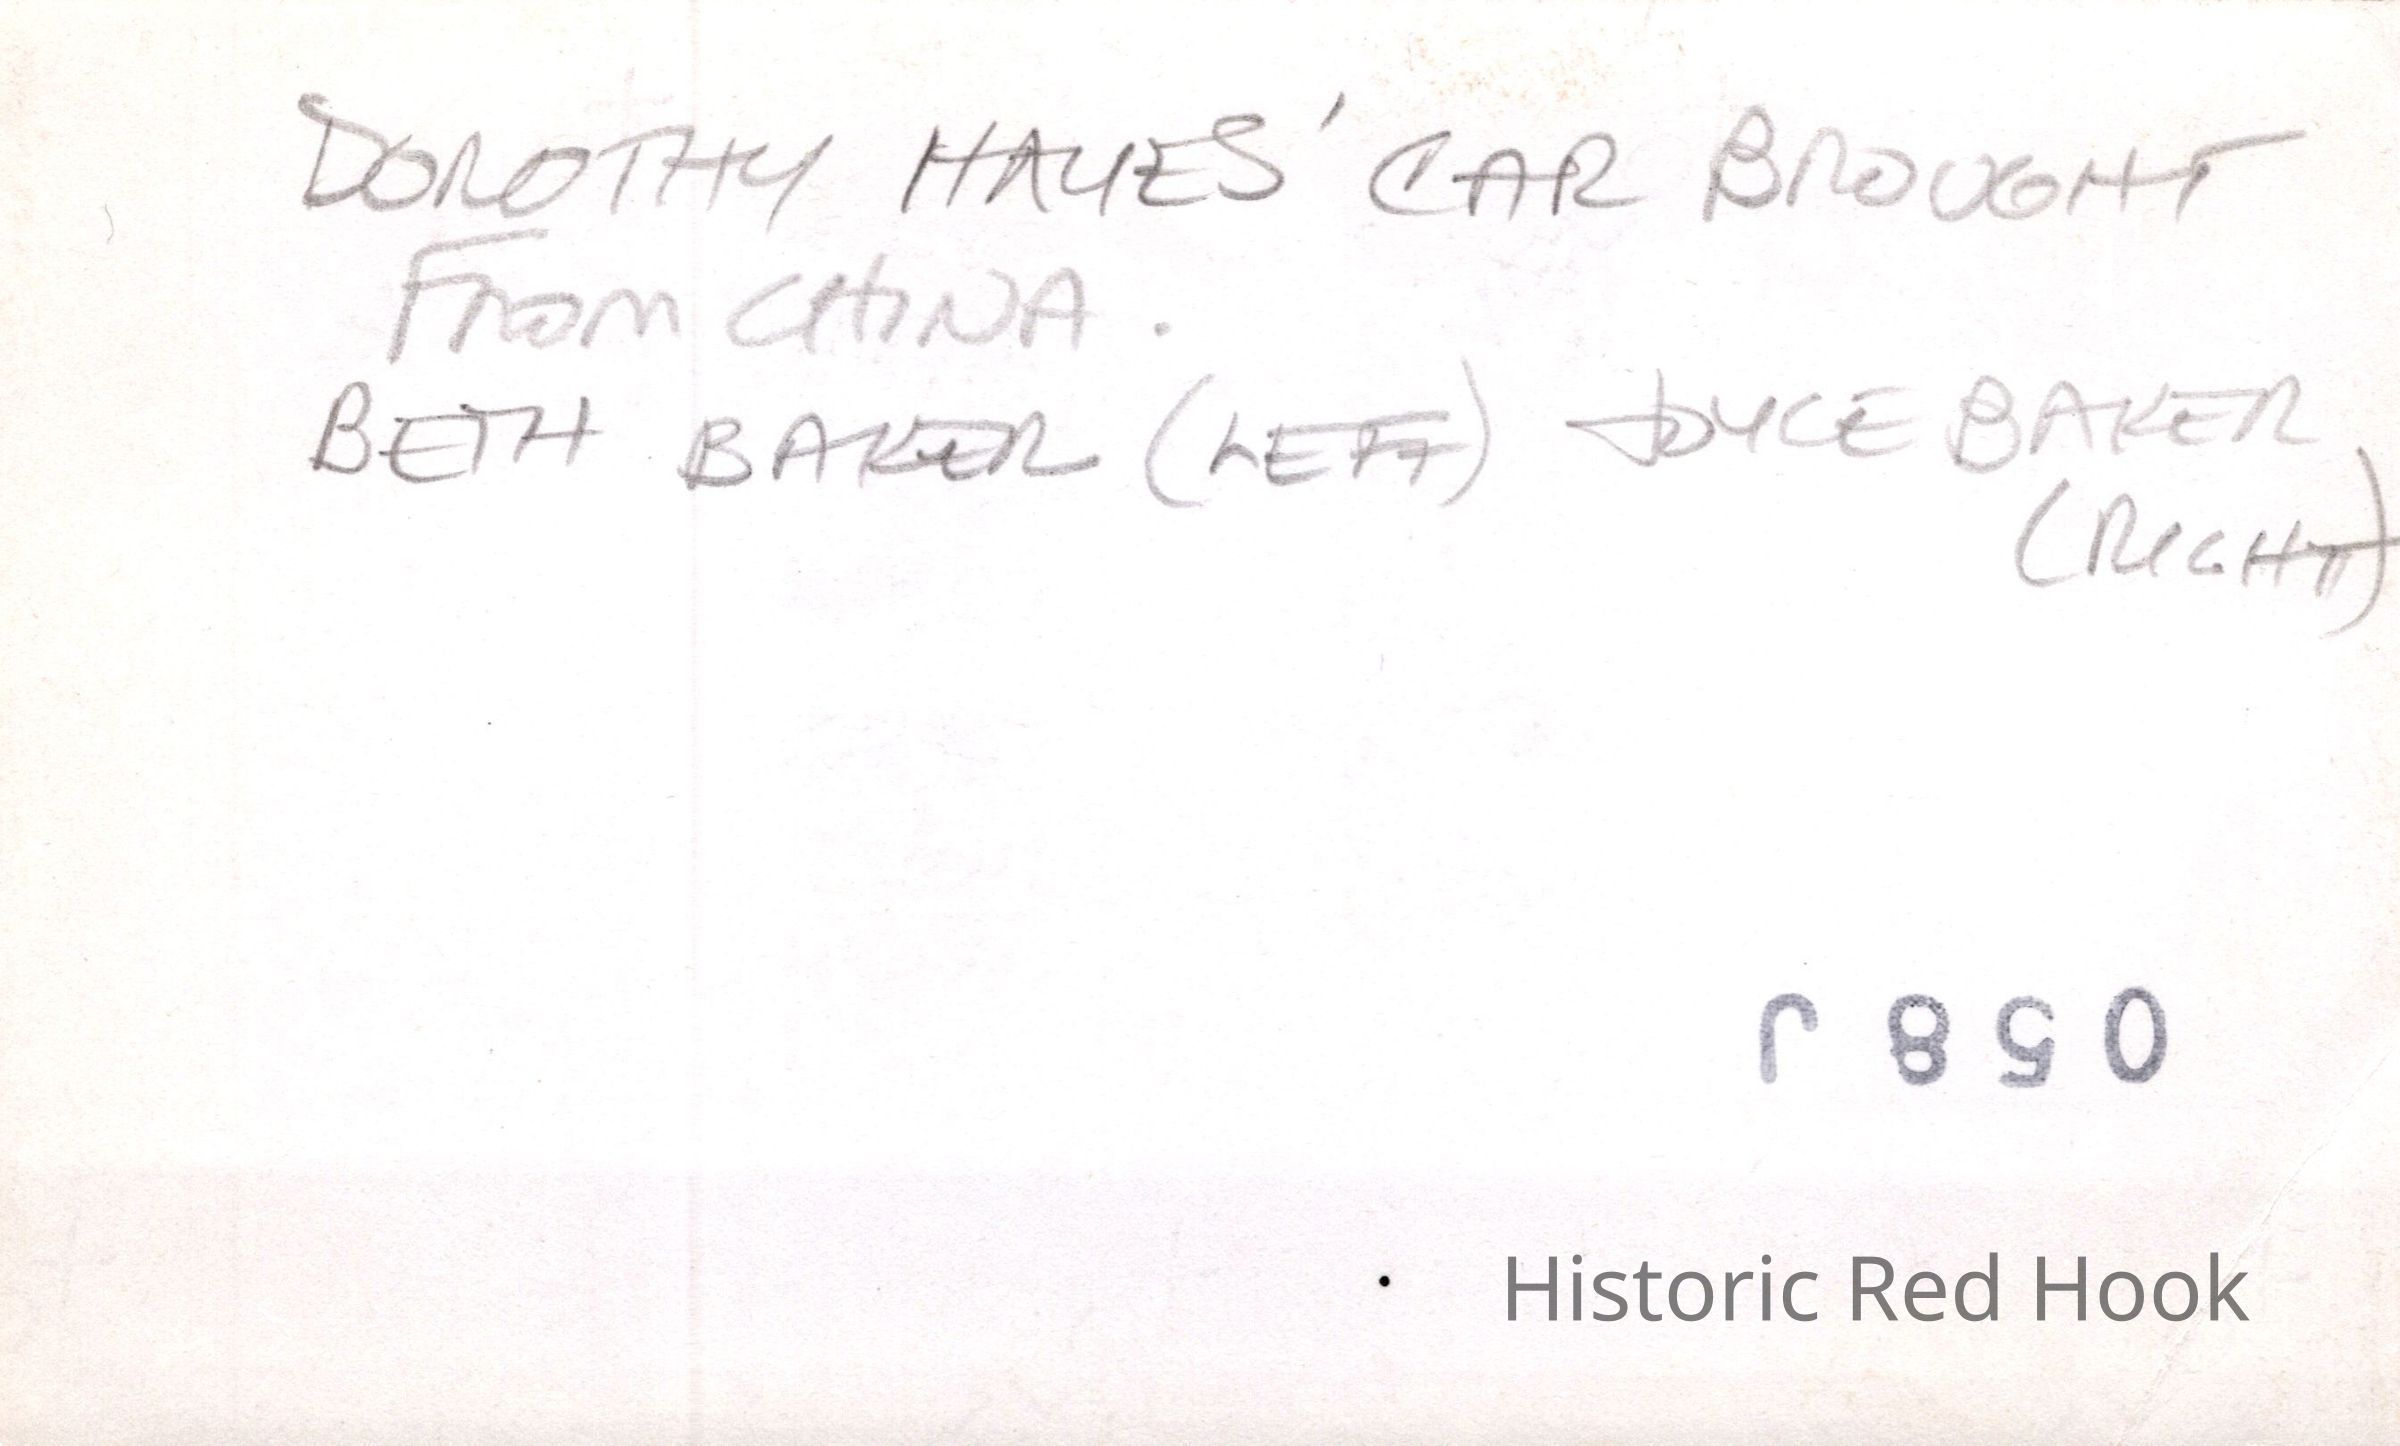 DOROTHY HAYES' CAR BROUGHT
FROM CHINA.
BETH BAKER (LEFT) JOYCE BAKER
(RIGHT)
058J
Historic Red Hook